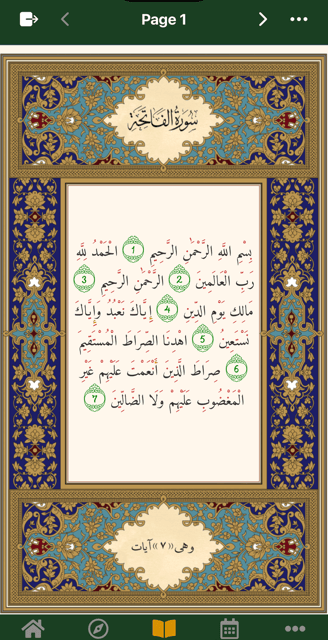 Page 1
سُورَةُ الفَاتِحَةِ
بِسْمِ اللَّهِ الرَّحْمَٰنِ الرَّحِيمِ ١ الْحَمْدُ لِلَّهِ
رَبِّ الْعَالَمِينَ ٢ الرَّحْمَٰنِ الرَّحِيمِ ٣
مَالِكِ يَوْمِ الدِّينِ ٤ إِيَّاكَ نَعْبُدُ وَإِيَّاكَ
نَسْتَعِينُ ٥ اهْدِنَا الصِّرَاطَ الْمُسْتَقِيمَ
٦ صِرَاطَ الَّذِينَ أَنْعَمْتَ عَلَيْهِمْ غَيْرِ
الْمَغْضُوبِ عَلَيْهِمْ وَلَا الضَّالِّينَ ٧
وهى «٧» آيات